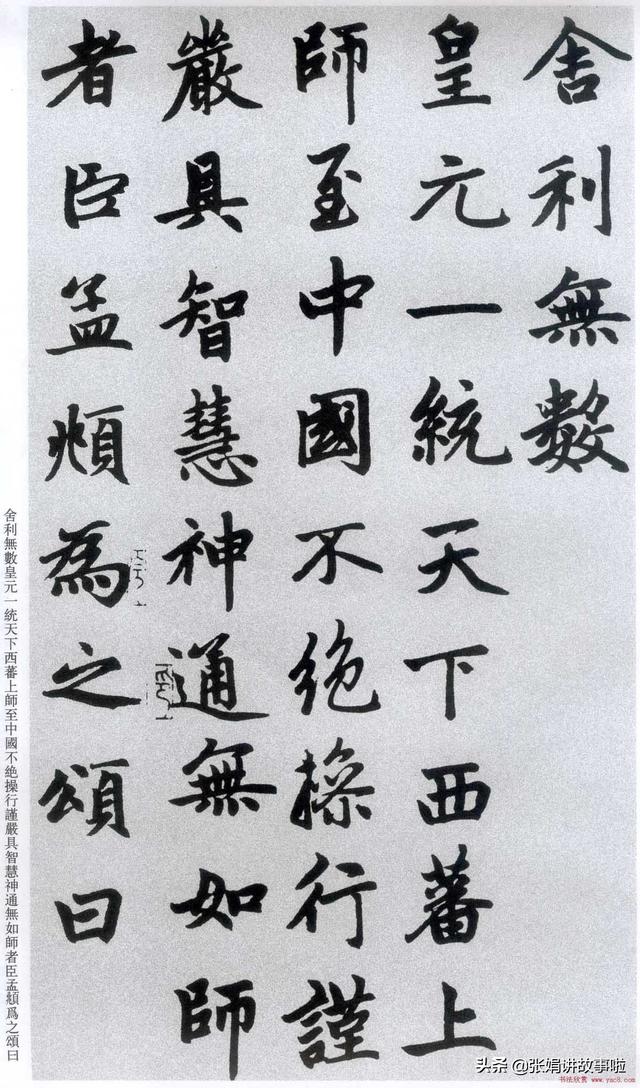 舍利無數
皇元一統天下西蕃上
師至中國不絶操行謹
嚴具智慧神通無如師
者臣孟頫為之頌曰
舍利無數皇元一統天下西蕃上師至中國不絶操行謹嚴具智慧神通無如師者臣孟頫爲之頌曰
头条 @张娟讲故事啦
书法欣赏 www.yac8.com